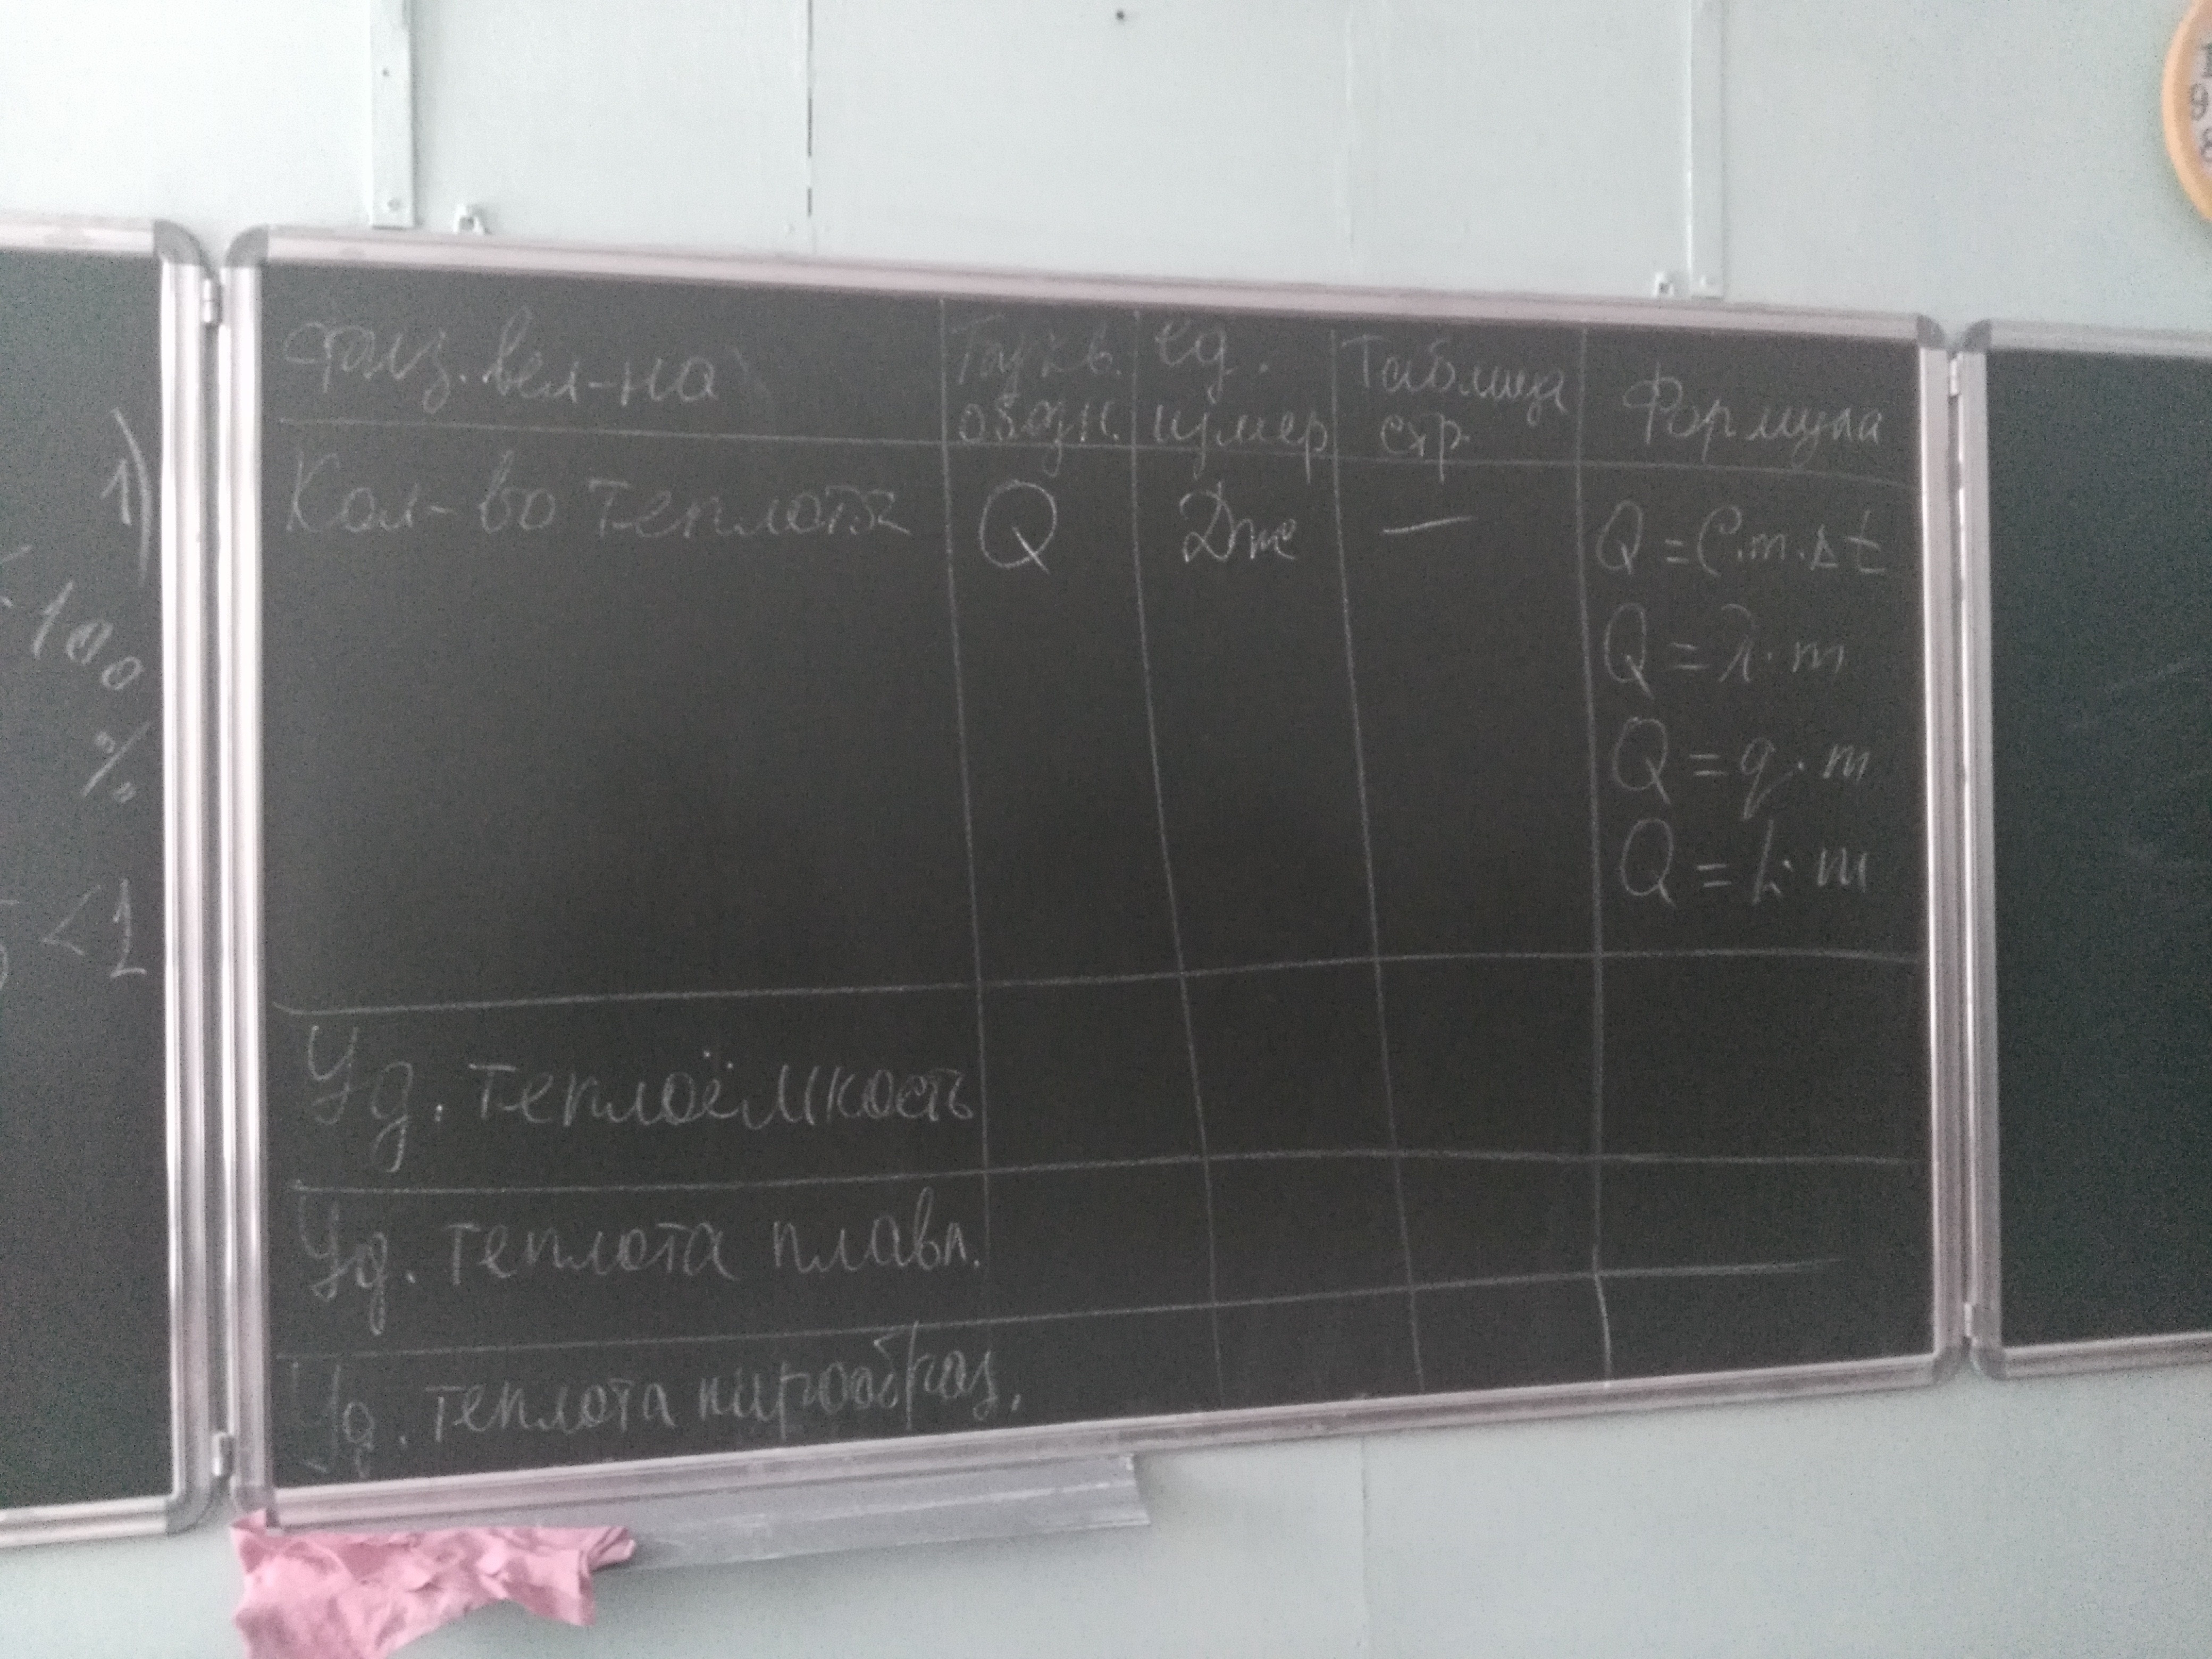 1)
100
%
< 1
физ. вел-на
Букв. обозн.
ед. измер
Таблица стр.
Формула
Кол-во теплоты
Q
Дж
—
Q = C·m·Δt
Q = λ·m
Q = q·m
Q = L·m
Уд. теплоёмкость
Уд. теплота плавл.
Уд. теплота парообраз.
9
8